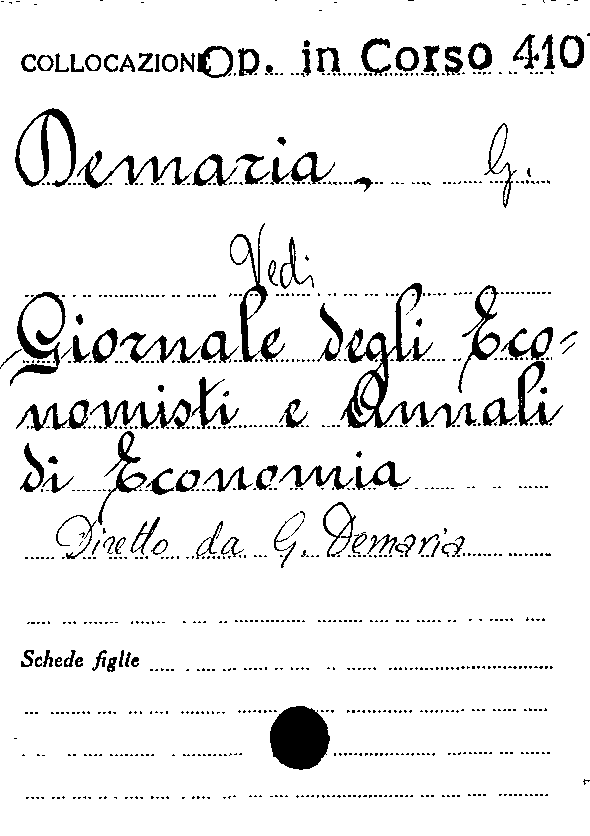 COLLOCAZIONE Op. in Corso 410
Demaria, G.
Vedi
Giornale degli Eco=
nomisti e Annali
di Economia
Diretto da G. Demaria
Schede figlie